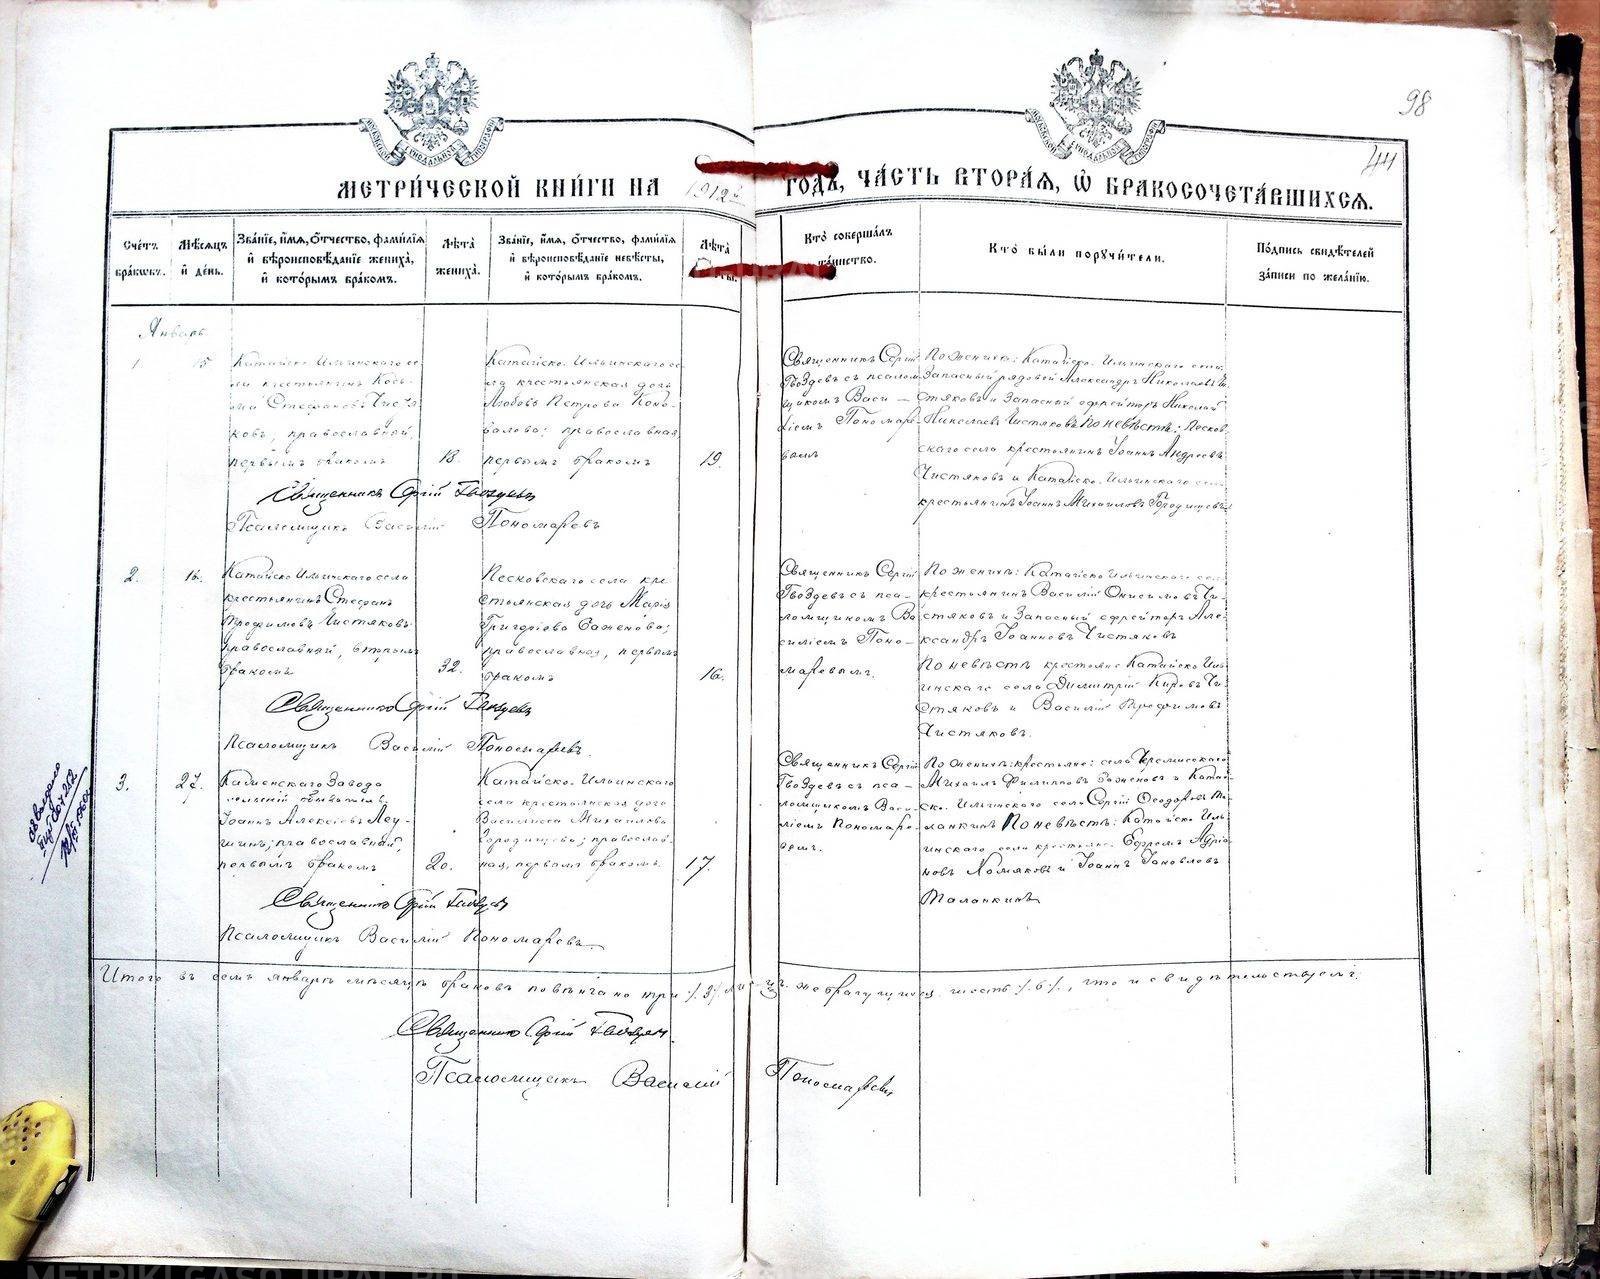 98
44
МЕТРИ́ЧЕСКОЙ КНИ́ГИ НА 1912й ГОДЪ, ЧА́СТЬ ВТОРА́Я, Ѡ БРАКОСОЧЕТА́ВШИХСЯ.
Сче́тъ бра́ковъ.
Мѣ́сяцъ и҆ де́нь.
Зва́нїе, и҆́мя, ѻ҆́тчество, фами́лїя и҆ вѣроисповѣ́данїе жениха̀, и҆ кото́рымъ бра́комъ.
Лѣ́та жениха̀.
Зва́нїе, и҆́мя, ѻ҆́тчество, фами́лїя и҆ вѣроисповѣ́данїе невѣ́сты, и҆ кото́рымъ бра́комъ.
Лѣ́та
Кто̀ соверша́лъ та́инство.
Кто̀ бы́ли порꙋчи́тели.
По́дпись свидѣ́телей за́писи по жела́нїю.
Январь
1.
15
Катайско Ильинскаго се-
ла крестьянинъ Кось-
ма Стефановъ Чистя
ковъ, православный,
первымъ бракомъ
18.
Катайско-Ильинскаго се
ла крестьянская дочь
Любовь Петрова Коно-
валова; православная,
первымъ бракомъ
19.
Священникъ Сергій
Гвоздевъ съ псалом
щикомъ Васи-
ліемъ Пономаре-
вымъ
По женихѣ: Катайско-Ильинскаго села
Запасный рядовой Александръ Николаевъ Чи
стяковъ и Запасный ефрейторъ Николай
Николаевъ Чистяковъ По невѣстѣ: Песков
скаго села крестьянинъ Іоаннъ Андреевъ
Чистяковъ и Катайско-Ильинскаго села
крестьянинъ Іоаннъ Михаиловъ Городищевъ
Священникъ Сергій Гвоздевъ
Псаломщикъ Василій Пономаревъ
2.
16.
Катайско Ильинскаго села
крестьянинъ Стефанъ
Трофимовъ Чистяковъ
православный, вторымъ
бракомъ
32.
Песковскаго села кре
стьянская дочь Марія
Григоріева Важенова;
православная, первымъ
бракомъ
16.
Священникъ Сергій
Гвоздевъ съ пса-
ломщикомъ Ва
силіемъ Поно-
маревымъ.
По женихѣ: Катайско Ильинскаго села
крестьянинъ Василій Онисимовъ Чи-
стяковъ и Запасный ефрейторъ Але-
ксандръ Іоанновъ Чистяковъ
По невѣстѣ крестьяне Катайско Иль
инскаго села Димитрій Кировъ Чи-
стяковъ и Василій Трофимовъ
Чистяковъ.
Священникъ Сергій Гвоздевъ
Псаломщикъ Василій Пономаревъ.
3.
27.
Каменскаго Завода
Іоаннъ Алексіевъ Леу-
шинъ; православный,
первымъ бракомъ
20.
Катайско-Ильинскаго
села крестьянская дочь
Василисса Михаилова
Городищева; православ
ная, первымъ бракомъ.
17.
Священникъ Сергій
Гвоздевъ съ пса-
ломщикомъ Васи
ліемъ Пономаре-
вымъ.
По женихѣ: крестьяне: села
Михаилъ Филипповъ Важеновъ и Катай
ско-Ильинскаго села Сергій Ѳеодоровъ Та-
ланкинъ По невѣстѣ: Катайско-Иль
инскаго села крестьяне Ефремъ Адріа
новъ Хомяковъ и Іоаннъ
Таланкинъ
Священникъ Сергій Гвоздевъ
Псаломщикъ Василій Пономаревъ.
Итого въ семъ январѣ мѣсяцѣ браковъ повѣнчано три /.3/. лицъ же брачущихся шесть /.6/., что и свидѣтельствуемъ:
Священникъ Сергій Гвоздевъ.
Псаломщикъ Василій Пономаревъ